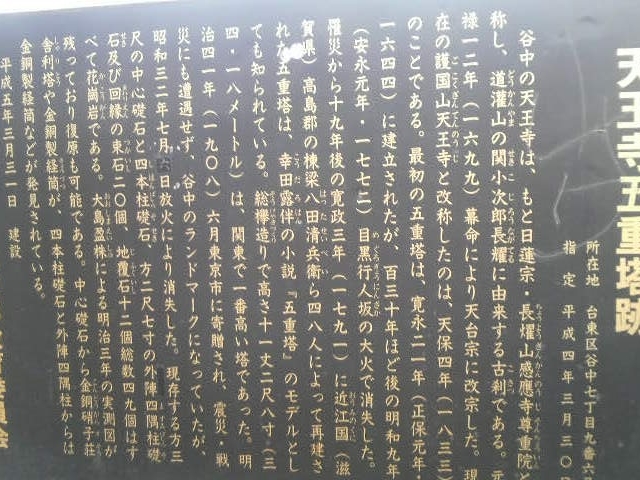 天王寺五重塔跡
所在地 台東区谷中七丁目九番六
指定 平成四年三月三〇日
谷中の天王寺は、もと日蓮宗・長耀山感應寺尊重院と
称し、道灌山の関小次郎長耀に由来する古刹である。元
禄一二年(一六九九)幕命により天台宗に改宗した。現
在の護国山天王寺と改称したのは、天保四年(一八三三)
のことである。最初の五重塔は、寛永二一年(正保元年・
一六四四)に建立されたが、百三十年ほど後の明和九年
(安永元年・一七七二)目黒行人坂の大火で消失した。
罹災から十九年後の寛政三年(一七九一)に近江国(滋
賀県)高島郡の棟梁八田清兵衛ら四八人によって再建さ
れた五重塔は、幸田露伴の小説『五重塔』のモデルとし
ても知られている。総欅造りで高さ十一丈二尺八寸(三
四・一八メートル)は、関東で一番高い塔であった。明
治四一年(一九〇八)六月東京市に寄贈され、震災・戦
災にも遭遇せず、谷中のランドマークになっていたが、
昭和三二年七月六日放火により消失した。現存する方三
尺の中心礎石と四本柱礎石、方二尺七寸の外陣四隅柱礎
石及び回縁の束石二〇個、地覆石十二個総数四九個はす
べて花崗岩である。大島盈株による明治三年の実測図が
残っており復原も可能である。中心礎石から金銅硝子荘
舎利塔や金銅製経筒が、四本柱礎石と外陣四隅柱からは
金銅製経筒などが発見されている。
平成五年三月三一日 建設
委員会